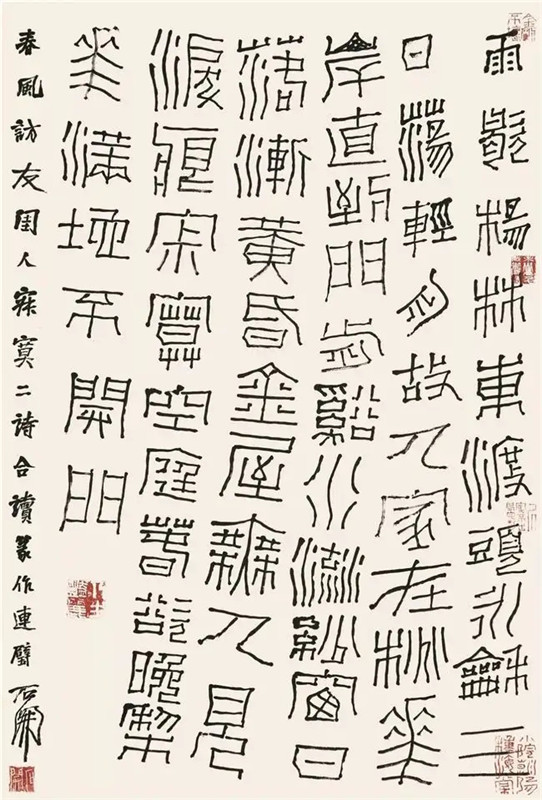 雨歇楊林東渡頭永龢三
日蕩輕舟故人家在桃華
岸直到門前谿水流紗窗日
落漸黃昏金屋無人見
淚痕寂寞空庭春欲晚棃
華滿地不開門
春風訪友閨人寂寞二詩合讀篆作連璧 石開